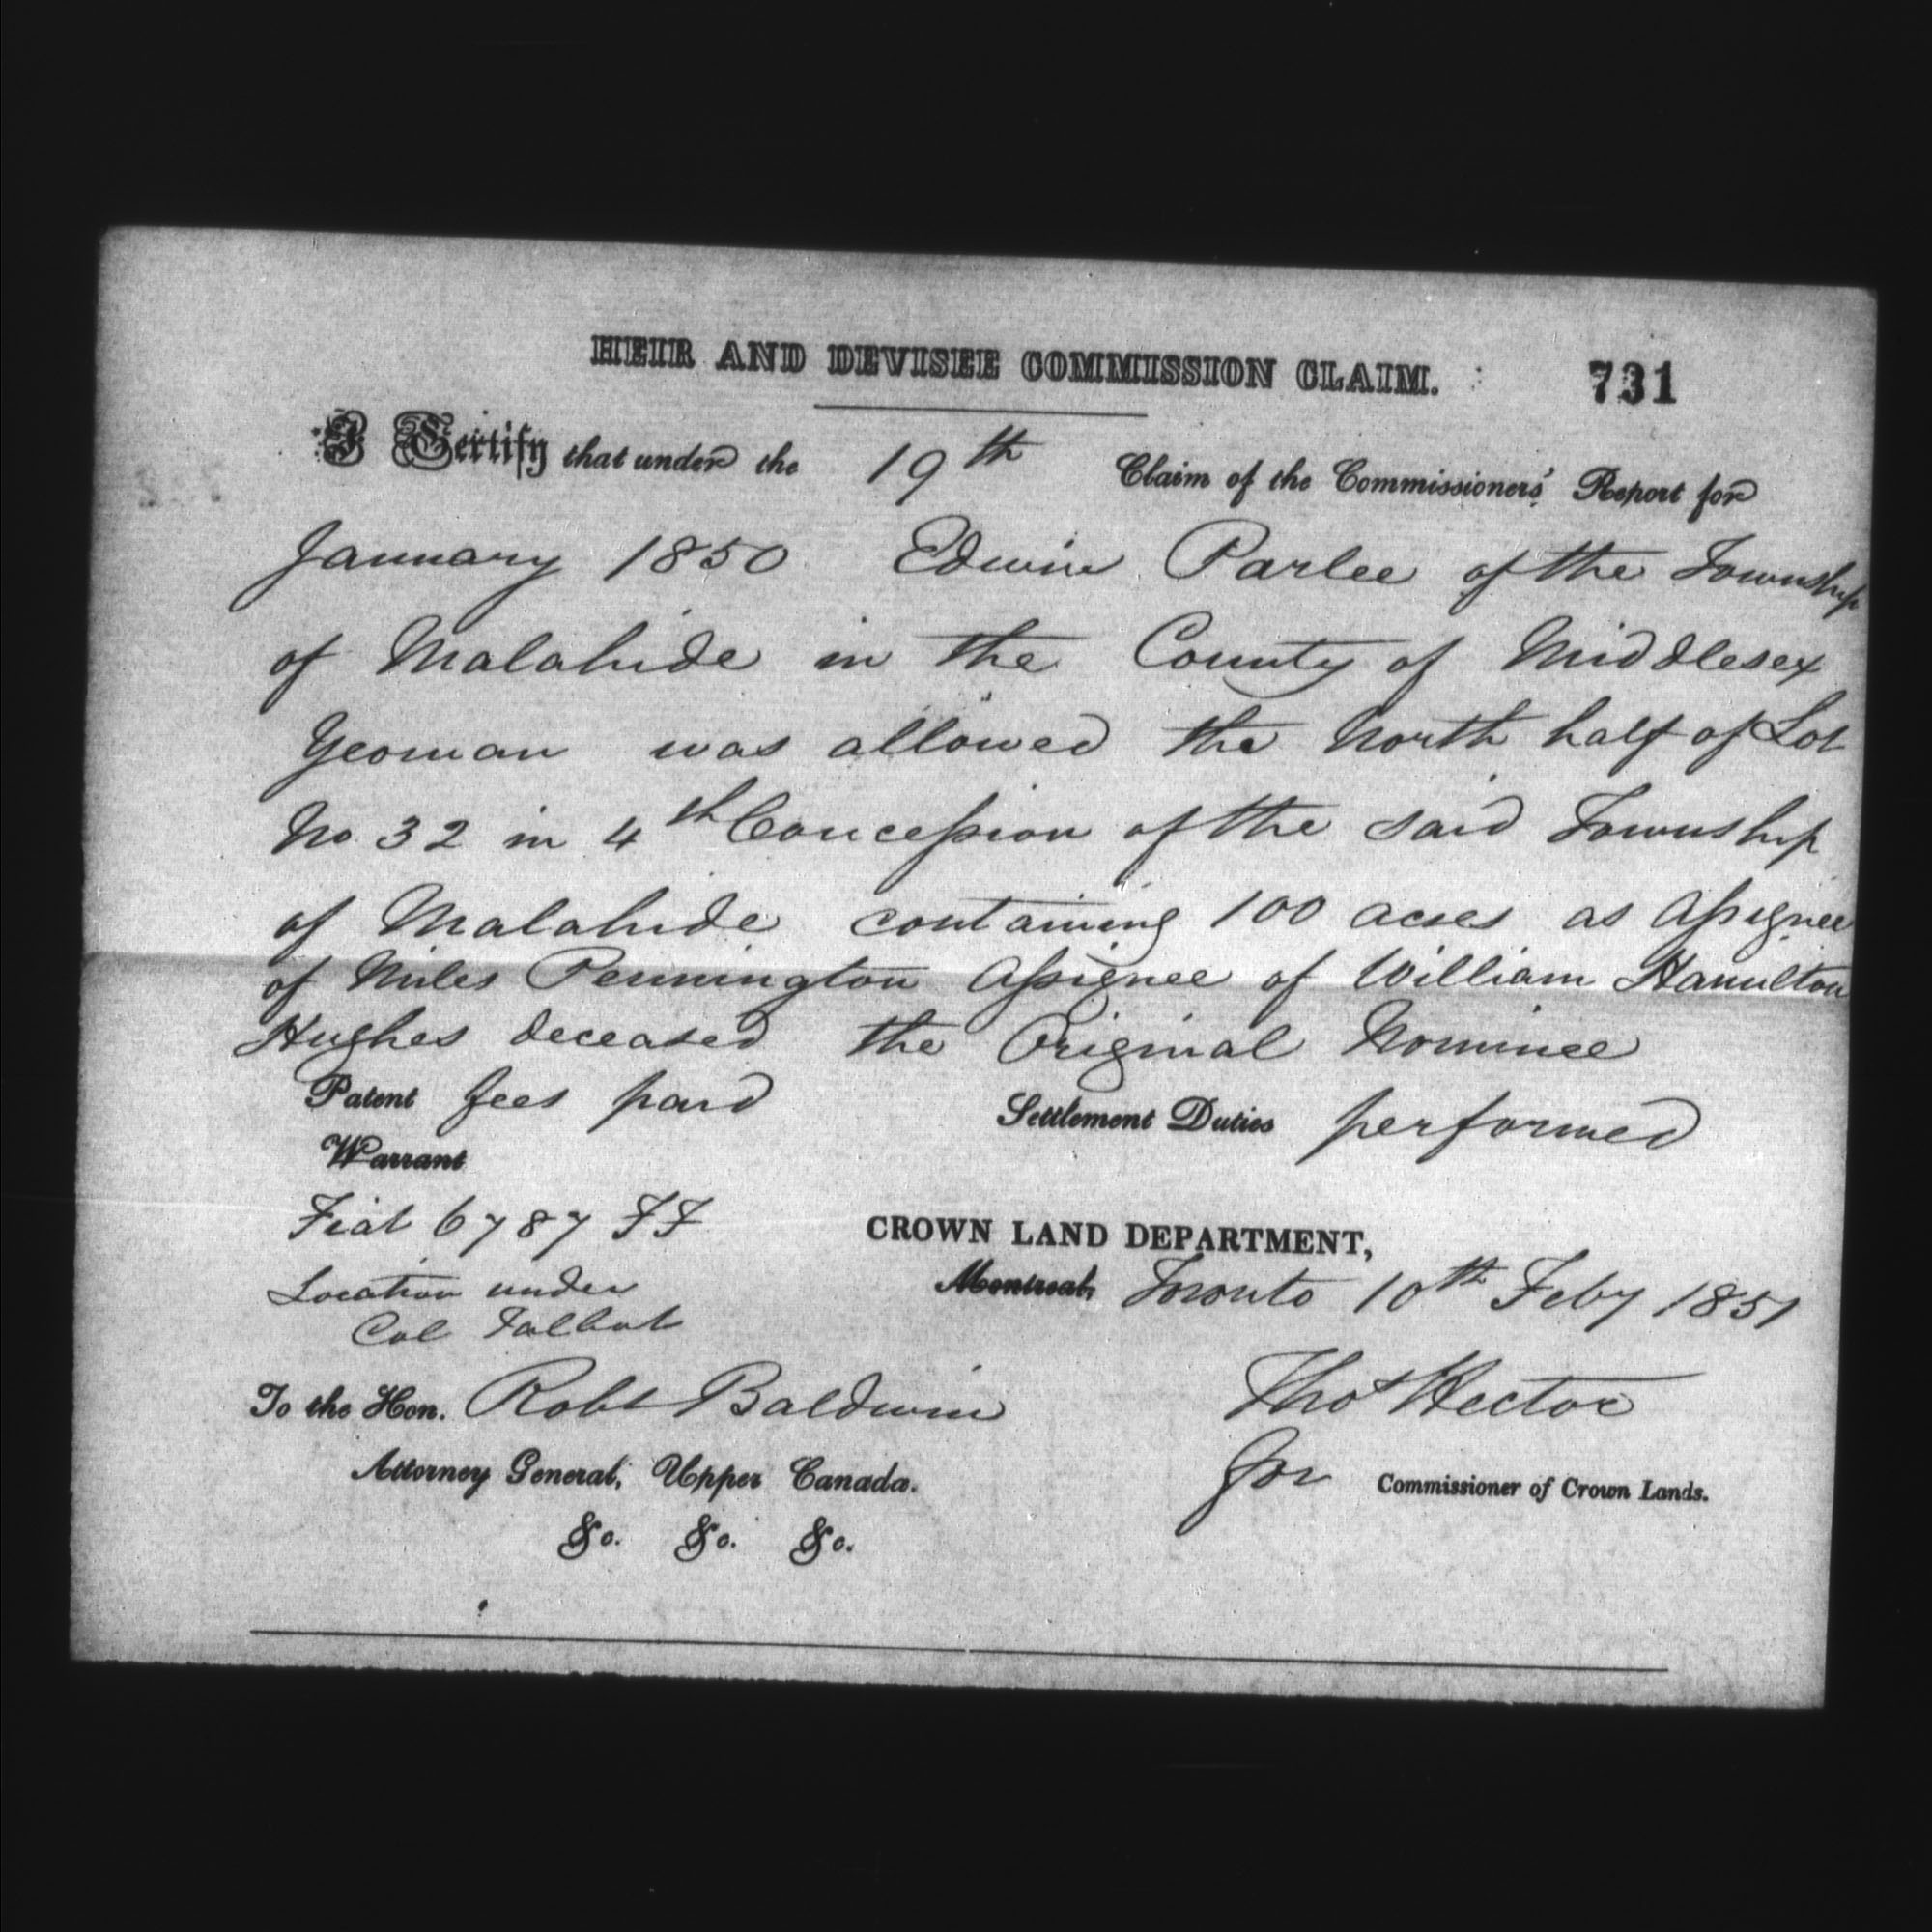 HEIR AND DEVISEE COMMISSION CLAIM. 731
I Certify that under the 19th Claim of the Commissioners' Report for
January 1850 Edwin Parlee of the Township
of Malahide in the County of Middlesex
Yeoman was allowed the North half of Lot
No 32 in 4th Concession of the said Township
of Malahide containing 100 acres as Assignee
of Miles Pennington Assignee of William Hamilton
Hughes deceased the Original Nominee
Patent fees paid Settlement Duties performed
Warrant
Fiat 6787 FF
CROWN LAND DEPARTMENT,
Location under
Col Talbot
Montreal, Toronto 10th Feby 1851
To the Hon. Robt Baldwin
Thos Hector
Attorney General, Upper Canada.
for Commissioner of Crown Lands.
&c. &c. &c.